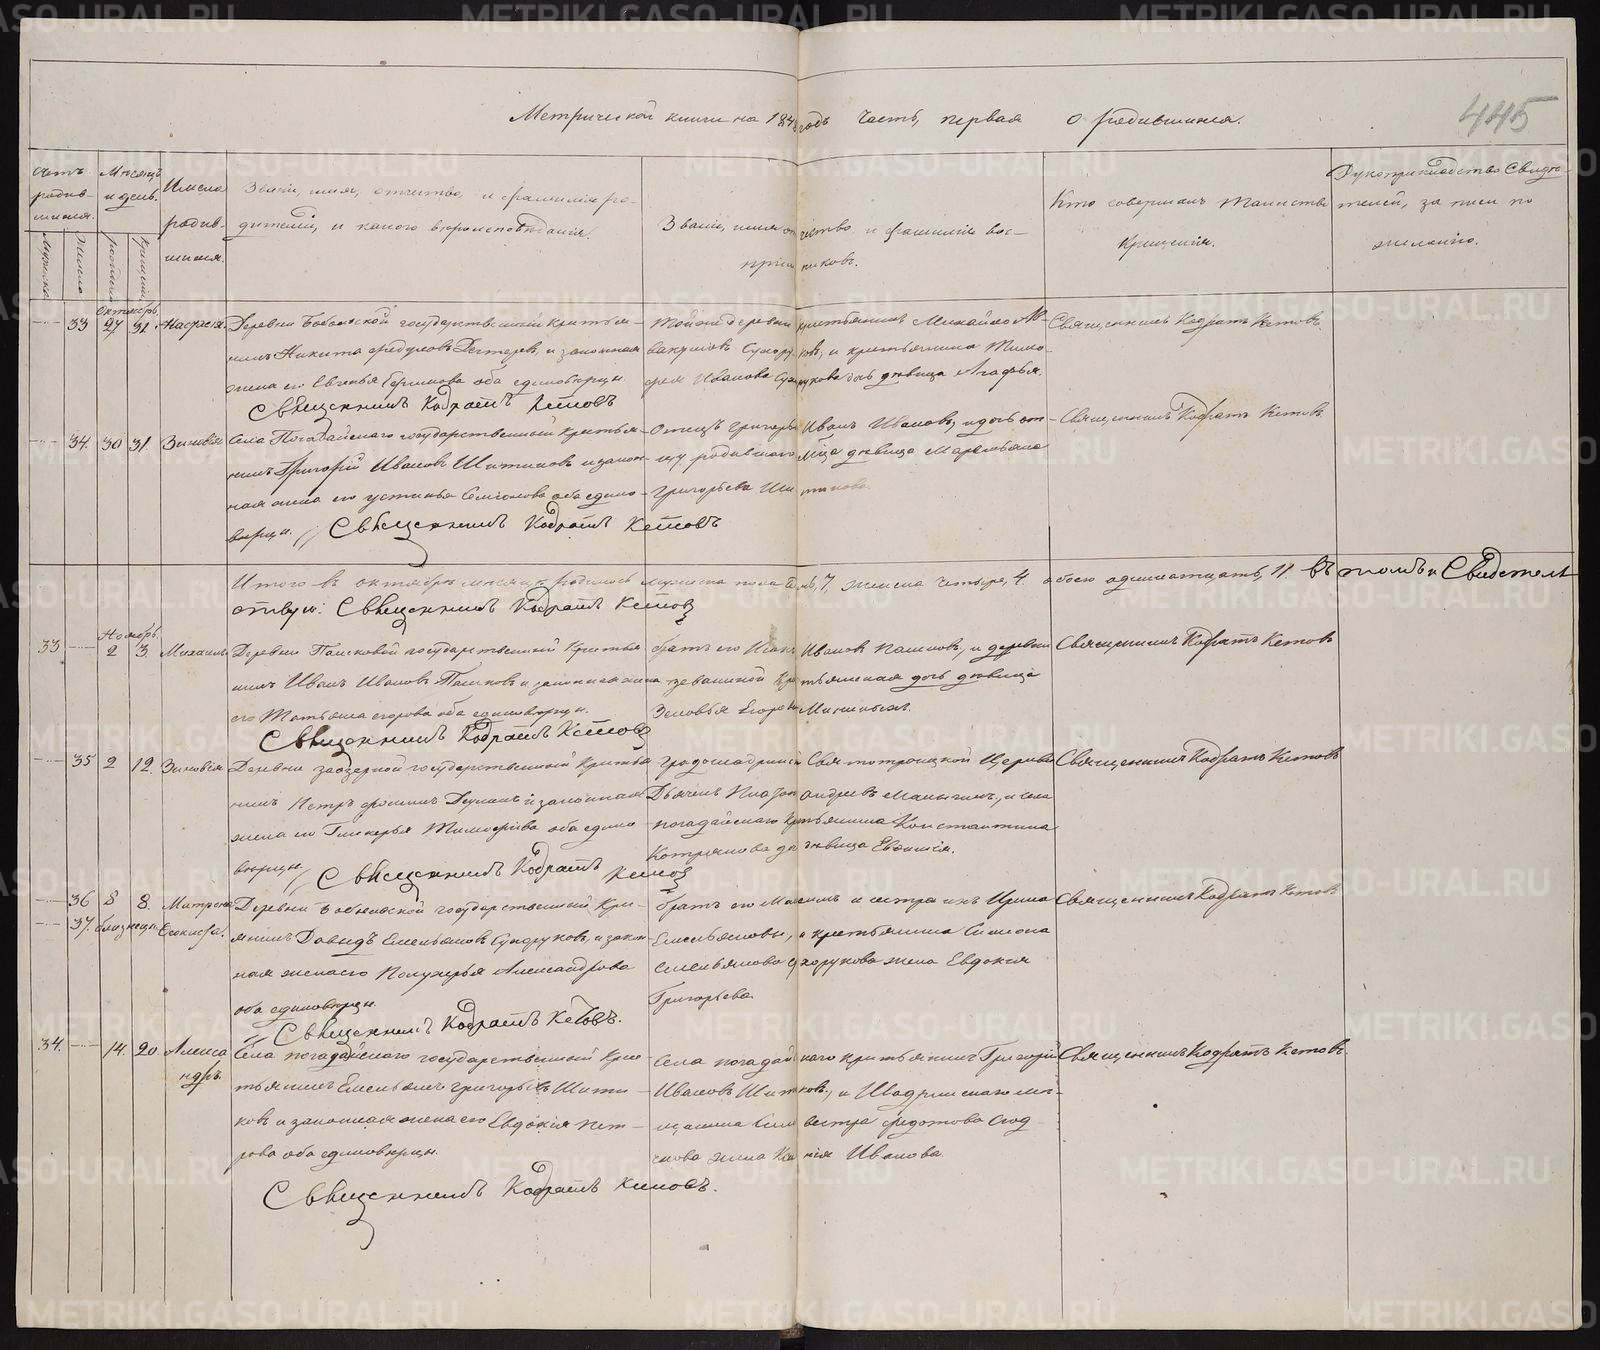 METRIKI.GASO-URAL.RU
Метрической книги на 184 годъ часть, первая о родившихся.
445
Счетъ родившихся.
Мужеска
Женска
Месяцъ и день.
рожденія
Крещенія
Имена родившихся.
Званіе, имя, отчество, и фамилія родителей, и какого вероисповѣданія.
Званіе, имя отчество и фамилія воспріемниковъ.
Кто совершалъ Таинство Крещенія.
Рукоприкладство Свидетелей, записи по желанію.
Октябрь
33 27 31. Настасія.
Деревни государственный крестья-
нинъ Никита Федуловъ Дегтеревъ, и законная
жена его Евгенья оба единоверцы.
Священникъ Кодратъ Кетовъ
Той же деревни крестьянинъ Михайло Ав-
вакумовъ Сухоруковъ, и крестьянина Тимо-
фея Иванова Сухорукова дочь дѣвица Агафья.
Священникъ Кодратъ Кетовъ.
34. 30 31. Зиновія
Села Погадайскаго государственный крестья-
нинъ Григорій Ивановъ Шитиковъ и закон-
ная жена его Устинья Семіонова оба едино-
верцы. Священникъ Кодратъ Кетовъ
Отецъ Григорья Иванъ Ивановъ, и дочь от-
цу родившаго дѣвица Маремьяна
Григорьева Шитикова.
Священникъ Кодратъ Кетовъ
Итого въ октябре месяце родилось мужеска пола семь, 7, женска четыре, 4. обоего одинатцать, 11. въ томъ и Свидетель
ствую: Священникъ Кодратъ Кетовъ
Ноябрь.
33 2 3. Михаилъ
Деревни Пашковой государственный крестья
нинъ Иванъ Ивановъ Пашковъ и законная жена
его Татьяна Егорова оба единоверцы.
Священникъ Кодратъ Кетовъ
братъ его Исакъ Ивановъ Пашковъ, и деревни
крестьянская дочь дѣвица
Зеновья Егорева
Священникъ Кодратъ Кетовъ
35 2 12. Зиновія
Деревни заозерной государственный крестья
нинъ Петръ и законная
жена его Гликерья Тимофеева оба едино-
верцы, Священникъ Кодратъ Кетовъ
градошадринской Святотроицкой Церкви
Дьячекъ Платонъ Андреевъ, и села
погадайскаго крестьянина Константина
дочь дѣвица Евгенія.
Священникъ Кодратъ Кетовъ
36 8 8. Матрена
37. близнецы. Гликера.
Деревни государственный кре-
янинъ Давидъ Емельяновъ Сухоруковъ, и закон
ная жена его Полухерья Александрова
оба единоверцы.
Священникъ Кодратъ Кетовъ.
братъ его Максимъ и сестра ихъ Ирина
Емельяновы, и крестьянина Симеона
Емельянова Сухорукова жена Евдокія
Григорьева.
Священникъ Кодратъ Кетовъ
34. 14. 20. Алекса
ндръ.
Села погадайскаго государственный кре-
стьянинъ Емельянъ Григорьевъ Шити-
ковъ и законная жена его Евдокія Пет-
рова оба единоверцы.
Священникъ Кодратъ Кетовъ.
Села погадайскаго крестьянинъ Григорій
Ивановъ Шитиковъ, и Шадринскаго ме-
щанина Сильвестра Федотова
жена Ксенія Иванова
Священникъ Кодратъ Кетовъ